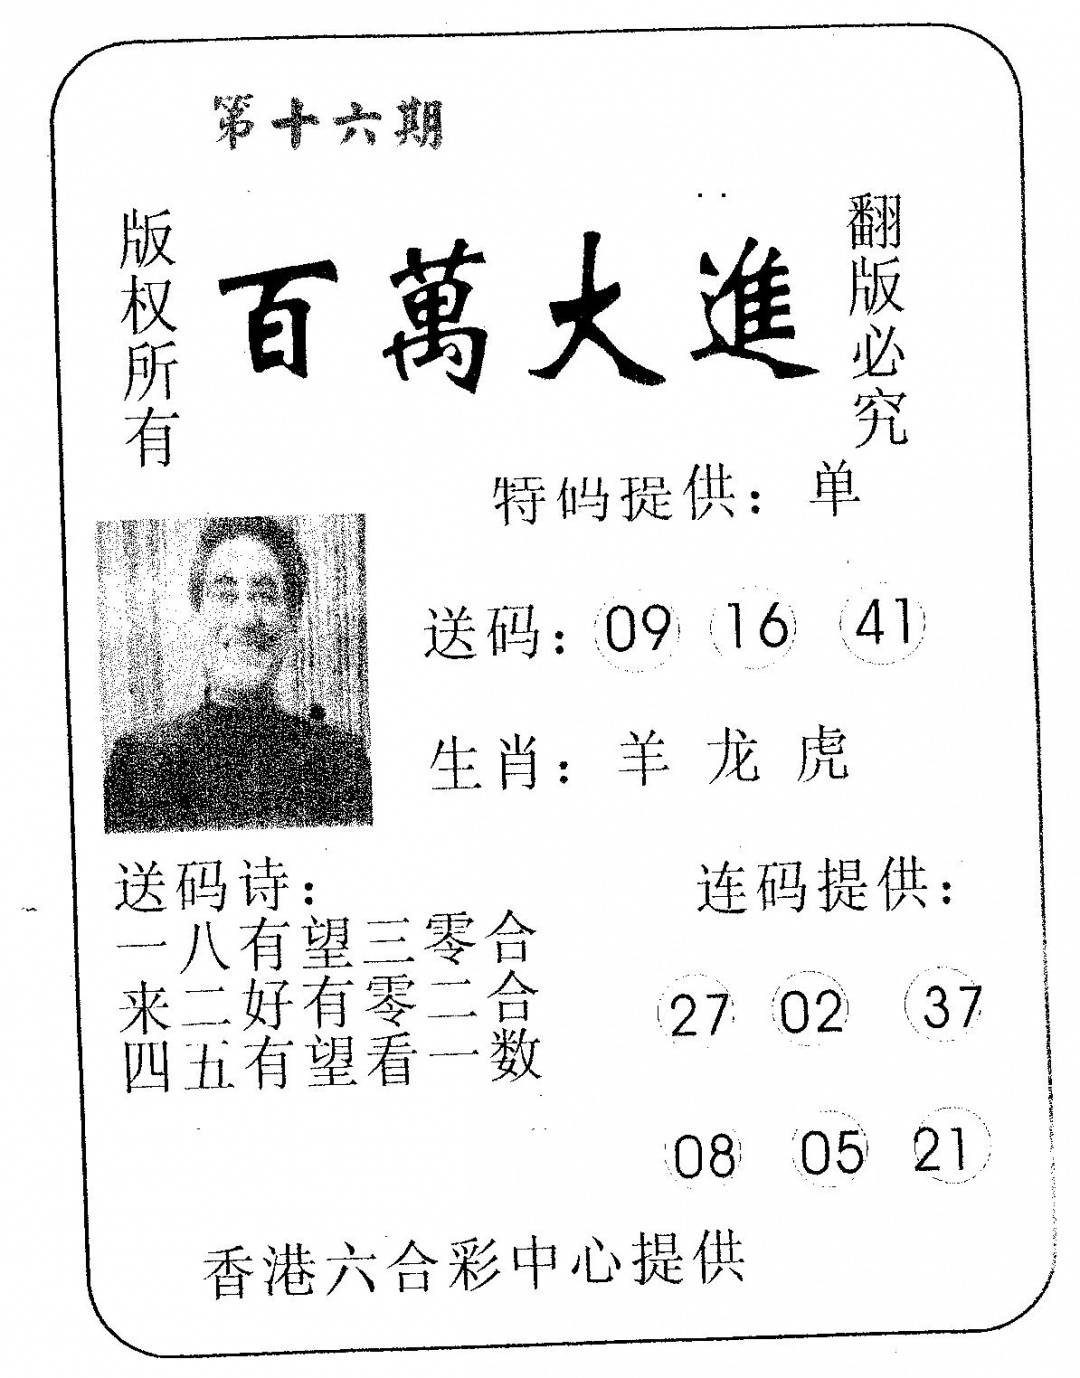 第十六期
版权所有
百萬大進
翻版必究
特码提供：单
送码：09 16 41
生肖：羊 龙 虎
送码诗：
一八有望三零合
来二好有零二合
四五有望看一数
连码提供：
27 02 37
08 05 21
香港六合彩中心提供